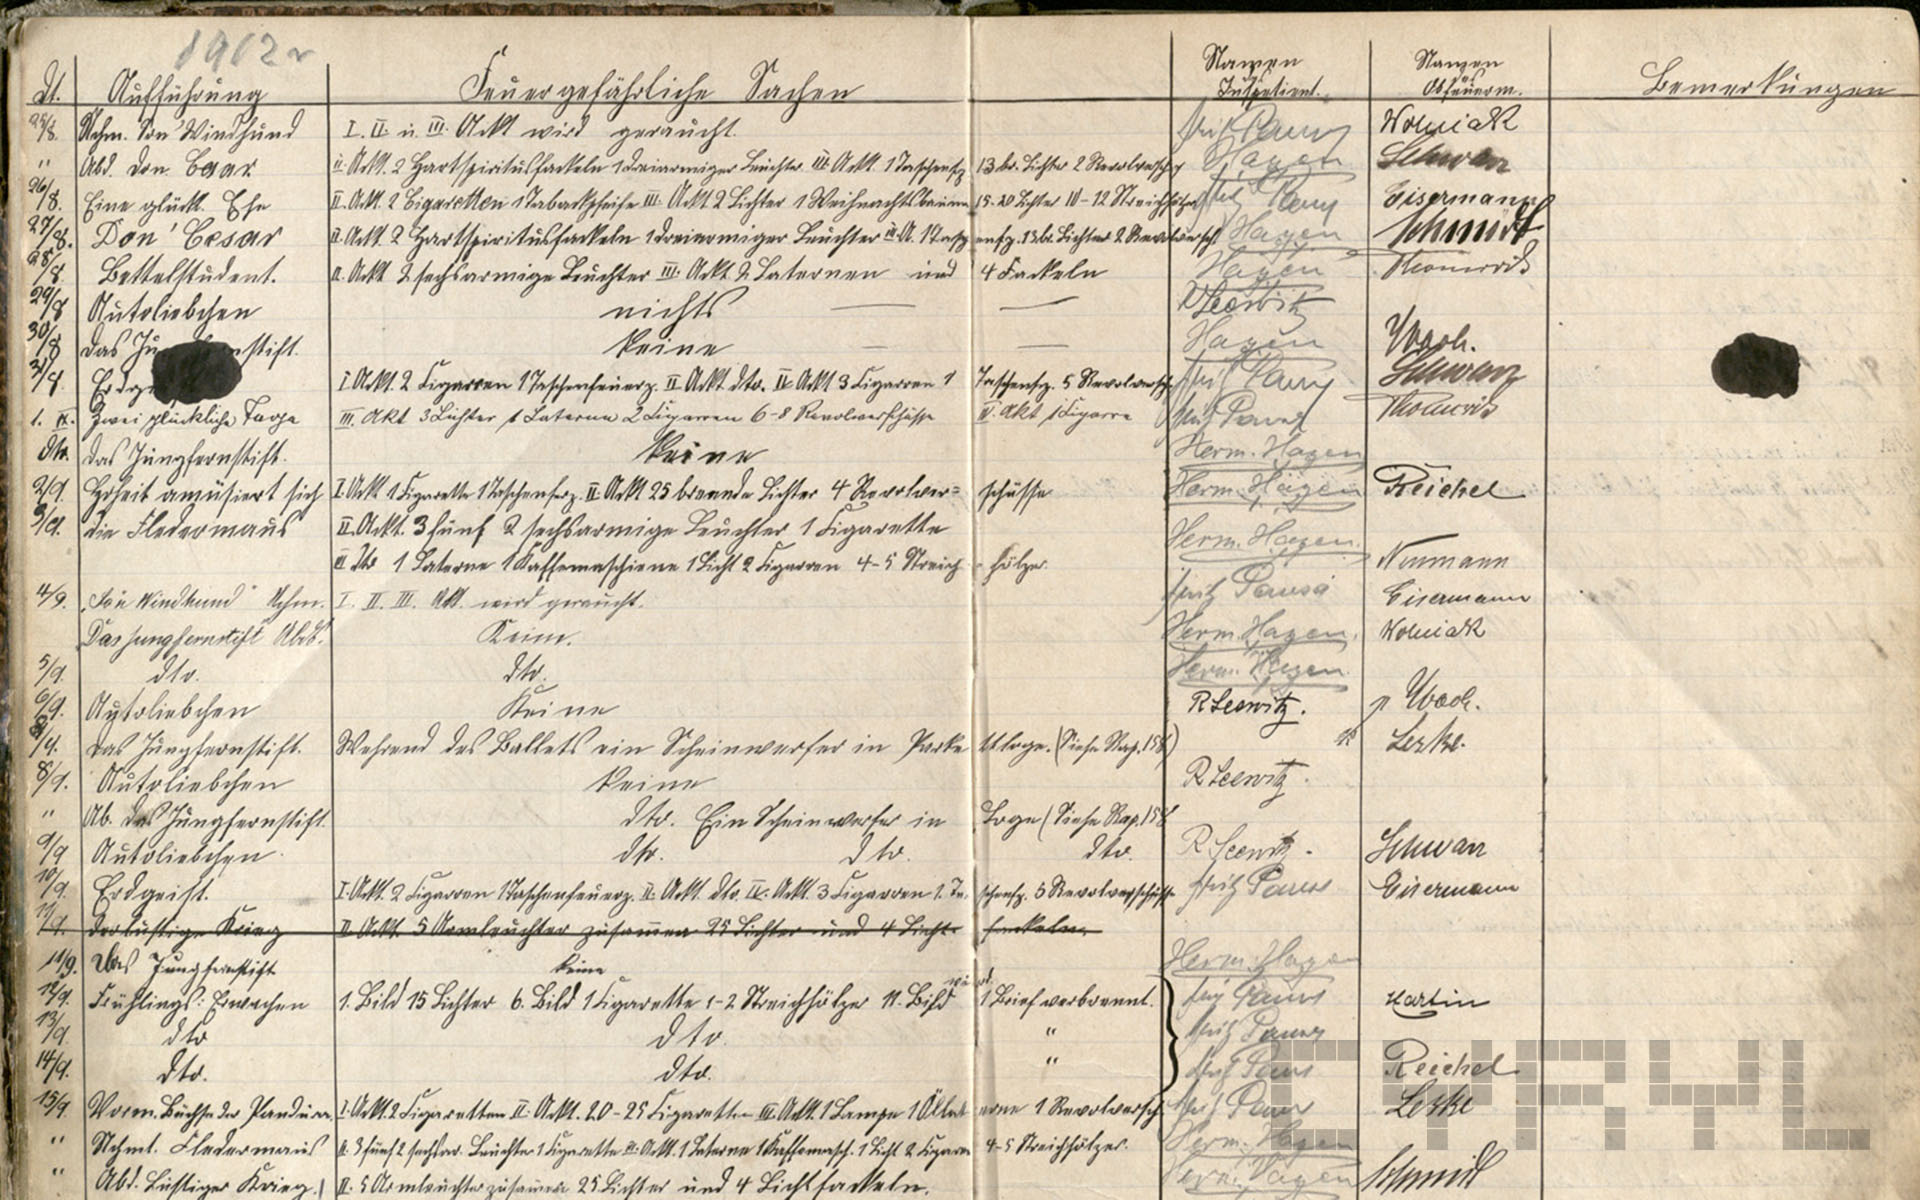 1912 r
Dt. Aufführung Feuergefährliche Sachen Namen Inspetient. Namen Obfeuerm. Bemerkungen
25/8. Nchm. Son' Windhund I. II. u. III. Ackt wird geraucht. Fritz Wolniak
" Abd. Don Cesar II. Ackt. 2 Hartspiritusfackeln 1 dreiarmiger Leuchter III. Ackt. 1 Taschenfz. 13 br. Lichter 2 Revolversch. Hagen Schwarz
26/8. Eine glückl. Ehe II. Ackt. 2 Cigaretten 1 Tabackpfeife III. Ackt 2 Lichter 1 Weihnachtsbaum 15-20 Lichter 10-12 Streichhölzer Fritz Eisermann
27/8. Don' Cesar II. Ackt 2 Hartspiritusfackeln 1 dreiarmiger Leuchter III. A. 1 Taschenfz. 13 br. Lichter 2 Revolversch. Hagen Schmidt
28/8 Bettelstudent. II. Ackt 2 sechsarmige Leuchter III. Ackt. 2 Laternen und 4 Fackeln Hagen
29/8 Autoliebchen nichts — — R Leewitz
30/8 das Ju stift. keine — — Hagen Wach.
31/8. Erdge I Ackt. 2 Cigarren 1 Taschenfeuerz. II Ackt dto. IV. Ackt 3 Cigarren 1 Taschenfz. 5 Revolversch. Fritz Schwarz
1. IX. Zwei glückliche Tage III. Akt 3 Lichter 1 Laterne 2 Cigarren 6-8 Revolverschüsse IV. Akt 1 Cigarre Fritz
dto. das Jungfernstift. keine Herm. Hagen
2/9. Hoheit amüsiert sich I. Ackt 1 Cigarette 1 Taschenferz. II. Ackt 25 brennde Lichter 4 Revolver= schüsse Herm. Hagen Reichel
3/9. die Fledermaus II. Ackt. 3 fünf 2 sechsarmige Leuchter 1 Cigarette
III dto 1 Laterne 1 Kaffemaschiene 1 Licht 2 Cigarren 4-5 Streich- hölzer. Herm. Hagen. Neumann
4/9. "So'n Windhund" Nchm. I. II. III. Akt. wird geraucht. Fritz Eisermann
"Das Jungfernstift" Abds. Keine. Herm. Hagen. Wolniak
5/9. dto. dto. Herm. Hagen.
6/9. Autoliebchen Keine R Leewitz. Wach.
/9. das Jungfernstift. Wehrend des Ballets ein Scheinwerfer in Parketloge. (Siehe Rap. 158) Leske.
8/9. Autoliebchen keine R Leewitz.
" Ab. das Jungfernstift. dto. Ein Scheinwerfer in Loge (Siehe Rap. 158
9/9 Autoliebchen dto. dto. dto. R Leewitz. Schwarz
10/9. Erdgeist. I. Ackt. 2 Cigarren 1 Taschenfeuerz. II. Ackt dto. IV. Ackt 3 Cigarren 1 Ta- schenfz. 5 Revolverschüsse Fritz Eisermann
11/9. der lustige Krieg II Ackt. 5 Armleuchter zusammen 25 Lichter und 4 Licht- fackeln.
11/9. Das Jungfernstift keine Herm. Hagen
12/9. Frühlings: Erwachen 1. Bild 15 Lichter 6. Bild 1 Cigarette 1-2 Streichhölzer 11. Bild wird 1 Brief verbrennt. Fritz Martin
13/9. dto dto. " Fritz
14/9. dto. dto. " Fritz Reichel
15/9. Vorm. Büchse der Pandora. I. Ackt. 2 Cigaretten II. Ackt. 20-25 Cigaretten III. Ackt. 1 Lampe 1 erne 1 Revolversch. Fritz Leske
" Nchmt. Fledermaus II. 3 fünf 2 sechsar. Leuchter 1 Cigarette III. Ackt. 1 Laterne 1 Kaffemasch. 1 Licht 2 Cigarren 4-5 Streichhölzer. Herm. Hagen
" Abd. Lustiger Krieg. II. 5 Armleuchter zusammen 25 Lichter und 4 Lichtfackeln. Herm. Hagen Schmidt